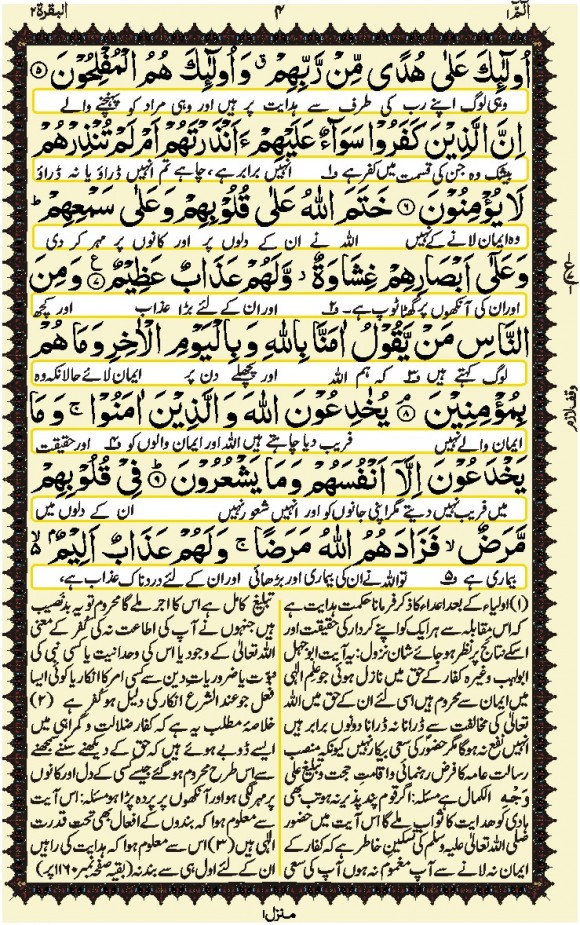 الٓمّٓ ١
٤
البقرة ٢
اُولٰٓئِكَ عَلٰى هُدًى مِّنْ رَّبِّهِمْ ۗ وَاُولٰٓئِكَ هُمُ الْمُفْلِحُوْنَ ﴿۵﴾
وہی لوگ اپنے رب کی طرف سے ہدایت پر ہیں اور وہی مراد کو پہنچنے والے
اِنَّ الَّذِيْنَ كَفَرُوْا سَوَآءٌ عَلَيْهِمْ ءَاَنْذَرْتَهُمْ اَمْ لَمْ تُنْذِرْهُمْ
بیشک وہ جن کی قسمت میں کفر ہے ف۱ انہیں برابر ہے، چاہے تم انہیں ڈراؤ یا نہ ڈراؤ
لَا يُؤْمِنُوْنَ ﴿۶﴾ خَتَمَ اللّٰهُ عَلٰى قُلُوْبِهِمْ وَعَلٰى سَمْعِهِمْ ؕ
وہ ایمان لانے کے نہیں اللہ نے ان کے دلوں پر اور کانوں پر مہر کر دی
وَعَلٰٓى اَبْصَارِهِمْ غِشَاوَةٌ ؗ وَّلَهُمْ عَذَابٌ عَظِيْمٌ ﴿۷﴾ ع وَمِنَ
اور ان کی آنکھوں پر گھٹا ٹوپ ہے۔ ف۲ اور ان کے لئے بڑا عذاب اور کچھ
النَّاسِ مَنْ يَّقُوْلُ اٰمَنَّا بِاللّٰهِ وَبِالْيَوْمِ الْاٰخِرِ وَمَا هُمْ
لوگ کہتے ہیں ف۳ کہ ہم اللہ اور پچھلے دن پر ایمان لائے حالانکہ وہ
بِمُؤْمِنِيْنَ ﴿۸﴾ۘ يُخٰدِعُوْنَ اللّٰهَ وَالَّذِيْنَ اٰمَنُوْا ۚ وَمَا
وقف لازم
ایمان والے نہیں فریب دیا چاہتے ہیں اللہ اور ایمان والوں کو ف۴ اور حقیقت
يَخْدَعُوْنَ اِلَّاۤ اَنْفُسَهُمْ وَمَا يَشْعُرُوْنَ ﴿۹﴾ؕ فِيْ قُلُوْبِهِمْ
میں فریب نہیں دیتے مگر اپنی جانوں کو اور انہیں شعور نہیں ان کے دلوں میں
مَّرَضٌ ۙ فَزَادَهُمُ اللّٰهُ مَرَضًا ۚ وَلَهُمْ عَذَابٌ اَلِيْمٌۢ ۙ
بیماری ہے ف۵ تو اللہ نے ان کی بیماری اور بڑھائی اور ان کے لئے دردناک عذاب ہے،
(۱) اولیاء کے بعد اعداء کا ذکر فرمانا حکمت ہدایت ہے
کہ اس مقابلہ سے ہر ایک کو اپنے کردار کی حقیقت اور
اسکے نتائج پر نظر ہو جائے شان نزول: یہ آیت ابوجہل
ابولہب وغیرہ کفار کے حق میں نازل ہوئی جو علم الٰہی
میں ایمان سے محروم ہیں اسی لئے ان کے حق میں اللہ
تعالیٰ کی مخالفت سے ڈرانا نہ ڈرانا دونوں برابر ہیں
انہیں نفع نہ ہوگا مگر حضور کی سعی بیکار نہیں کیونکہ منصب
رسالت عامہ کا فرض رہنمائی و اقامت حجت و تبلیغ علی
وجہ الکمال ہے مسئلہ: اگر قوم پند پذیر نہ ہو تب بھی
ہادی کو ہدایت کا ثواب ملے گا اس آیت میں حضور
صلی اللہ تعالیٰ علیہ وسلم کی تسکین خاطر ہے کہ کفار کے
ایمان نہ لانے سے آپ مغموم نہ ہوں آپ کی سعی
تبلیغ کامل ہے اس کا اجر ملے گا محروم تو یہ بدنصیب
ہیں جنہوں نے آپ کی اطاعت نہ کی کفر کے معنی
اللہ تعالیٰ کے وجود یا اس کی وحدانیت یا کسی نبی کی
نبوت یا ضروریات دین سے کسی امر کا انکار یا کوئی ایسا
فعل جو عند الشرع انکار کی دلیل ہو کفر ہے (۲)
خلاصہ مطلب یہ ہے کہ کفار ضلالت و گمراہی میں
ایسے ڈوبے ہوئے ہیں کہ حق کے دیکھنے سننے سمجھنے
سے اس طرح محروم ہو گئے جیسے کسی کے دل اور کانوں
پر مہر لگی ہو اور آنکھوں پر پردہ پڑا ہو مسئلہ: اس آیت
سے معلوم ہوا کہ بندوں کے افعال بھی تحت قدرت
الٰہی ہیں (۳) اس سے معلوم ہوا کہ ہدایت کی راہیں
ان کے لئے اول ہی سے بند نہ (بقیہ صفحہ نمبر ۱۱۶۰ پر)
منزل ۱